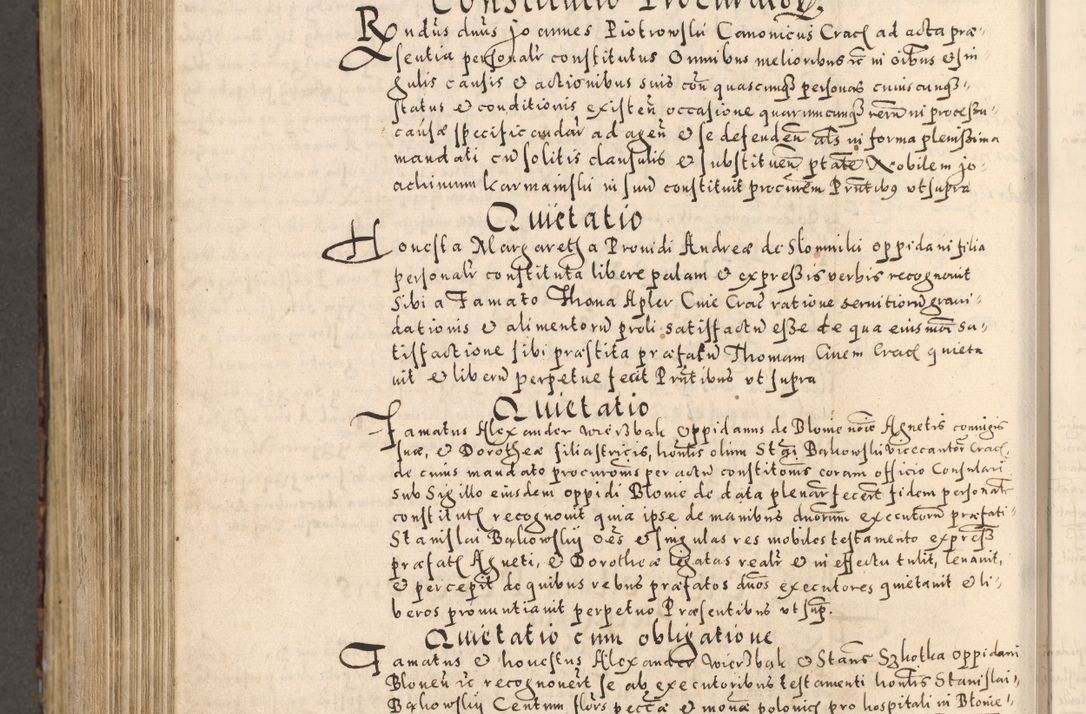 Constitutio Procuratorꝭ
Rndūs dnūs Joannes Piotrowski Canonicus Crac̄ ad acta præ-
sentia personalr̄ constitutus Omnibus melioribus rc̄ in oībus et sin-
gulis causis et actionibus suis cōn quascunqȝ personas cuiuscunqȝ
status et conditionis existen̄ occasione quarumcunqȝ rerum in processu
causæ specificandar̄ ad agen̄ et se defenden̄ als̄ in forma plenissima
mandati cū solitis clausulis et substituen̄ ptāte Nobilem Jo-
achimum Karmainski in suū constituit procūrem Prn̄tibȝ ut supra
Quietatio
Honesta Margaretha Prouidi Andreæ de Slomniki oppidani filia
personalr̄ constituta libere palam et expressis verbis recognouit
Sibi a Famato Thoma Apler Ciue Crac̄ ratione seruitiorū graui-
dationis et alimentorū proli satisfactū esse de qua eiusmōi sa-
tisfactione sibi præstita præfatū Thomam Ciuem Crac̄ quieta
uit et liberū perpetue fecit Prn̄tibus ut supra
Quietatio
Famatus Alexander Wierzbak Oppidanus de Blonie noīe Agnetis coniugis
suæ, et Dorotheæ filiastris, honēti olim Stāi Bąkowski vicecantor̄ Crac̄
de cuius mandato procuronīs per actū constitonīs coram officio Consulari
Sub Sigillo eiusdem oppidi Blonie de data plenar̄ fecert̄ fidem personalr̄
constitutꝭ recognouit quia ipse de manibus duorum executorū præfati
Stanislai Bąkowskij oēs et singulas res mobiles testamento express̄
præfatꝭ Agneti, et Dorotheæ legatas realr̄ et in effectu tulit, leuauit,
et percepit de quibus rebus præfatos duōs executores quietauit et li-
beros pronuntiauit perpetuo Præsentibus ut sup̄.
Quietatio cum obligatione
Famatus et honestus Alexander Wierzbak et Stan̄s Szkotka oppidani
Blonen̄ rc̄ recognouert̄ se ab executoribus testamenti honēti Stanislai
Bąkowskij Centum flōrs peccæ et monæ polonicꝭ pro hospitali in Blonie